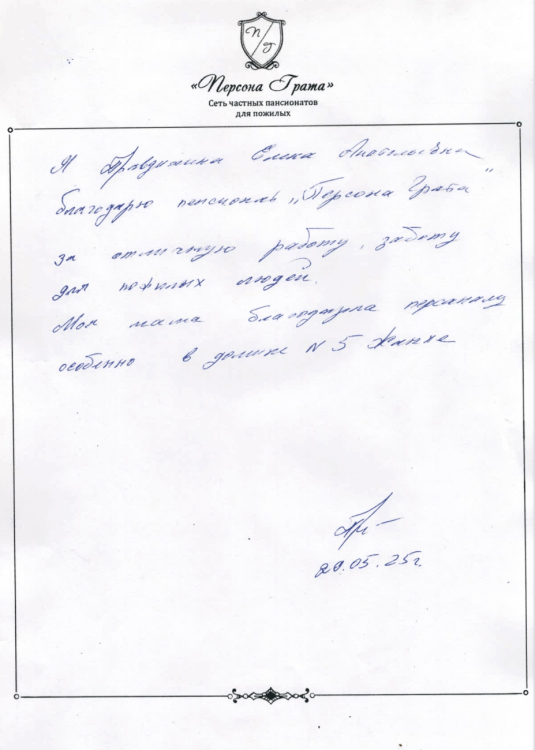 П Г
«Персона Грата»
Сеть частных пансионатов
для пожилых
Я Правдухина Елена Анатольевна
благодарю пенсионат „Персона Грата"
за отличную работу, заботу
для пожилых людей.
Моя мама благодарна персоналу
особенно в домике N 5
29.05.25г.